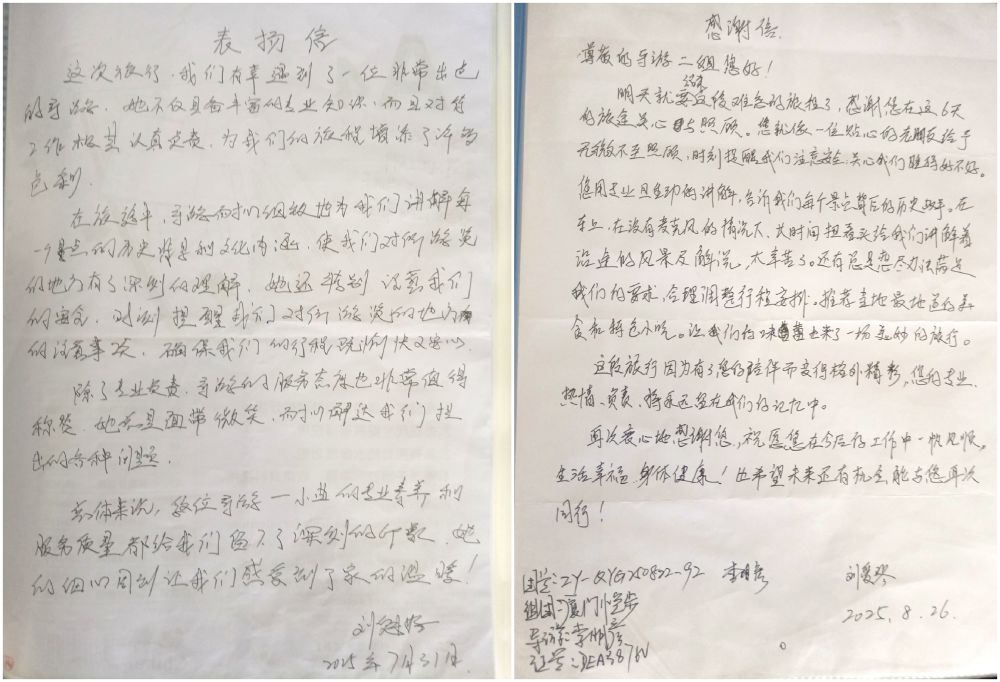 表扬信
这次旅行，我们有幸遇到了一位非常出色
的导游，她不仅具备丰富的专业知识，而且对待
工作极其认真负责，为我们的旅程增添了许多
色彩。
在旅途中，导游耐心细致地为我们讲解每
一个景点的历史背景和文化内涵，使我们对所游览
的地方有了深刻的理解，她还特别注意我们
的安全，时刻提醒我们对所游览的地方
的注意事项，确保我们的行程既愉快又安心
除了专业负责，导游的服务态度也非常值得
称赞，她总是面带微笑，耐心解达我们提
出的各种问题。
总体来说，这位导游一小温的专业素养和
服务质量都给我们留下了深刻的印象，她
的细心周到让我们感受到了家的温暖！
2025年7月31日
感谢信
尊敬的导游二姐您好！
明天就要结束这段难忘的旅程了，感谢您在这6天
的旅途关心与照顾。您就像一位贴心的老朋友给予
无微不至照顾，时刻提醒我们注意安全，关心我们睡得好不好。
您用专业且生动的讲解，告诉我们每个景点背后的历史故事。在
车上，在没有麦克风的情况下，长时间扭着头给我们讲解着
沿途的风景及解说，太辛苦了。还有总是想尽办法满足
我们的要求，合理调整行程安排。推荐当地最地道的美
食和特色小吃。让我们的味蕾也来了一场美妙的旅行。
这段旅行因为有了您的陪伴而变得格外精彩，您的专业、
热情、负责、将永远留在我们的记忆中。
再次衷心地感谢您，祝愿您在今后的工作中一帆风顺，
生活幸福，身体健康！也希望未来还有机会能与您再次
同行！
团号：ZY-QYG250822-92 刘爱琴
组团：厦门 2025.8.26
导游：李
证号：DEA3876V